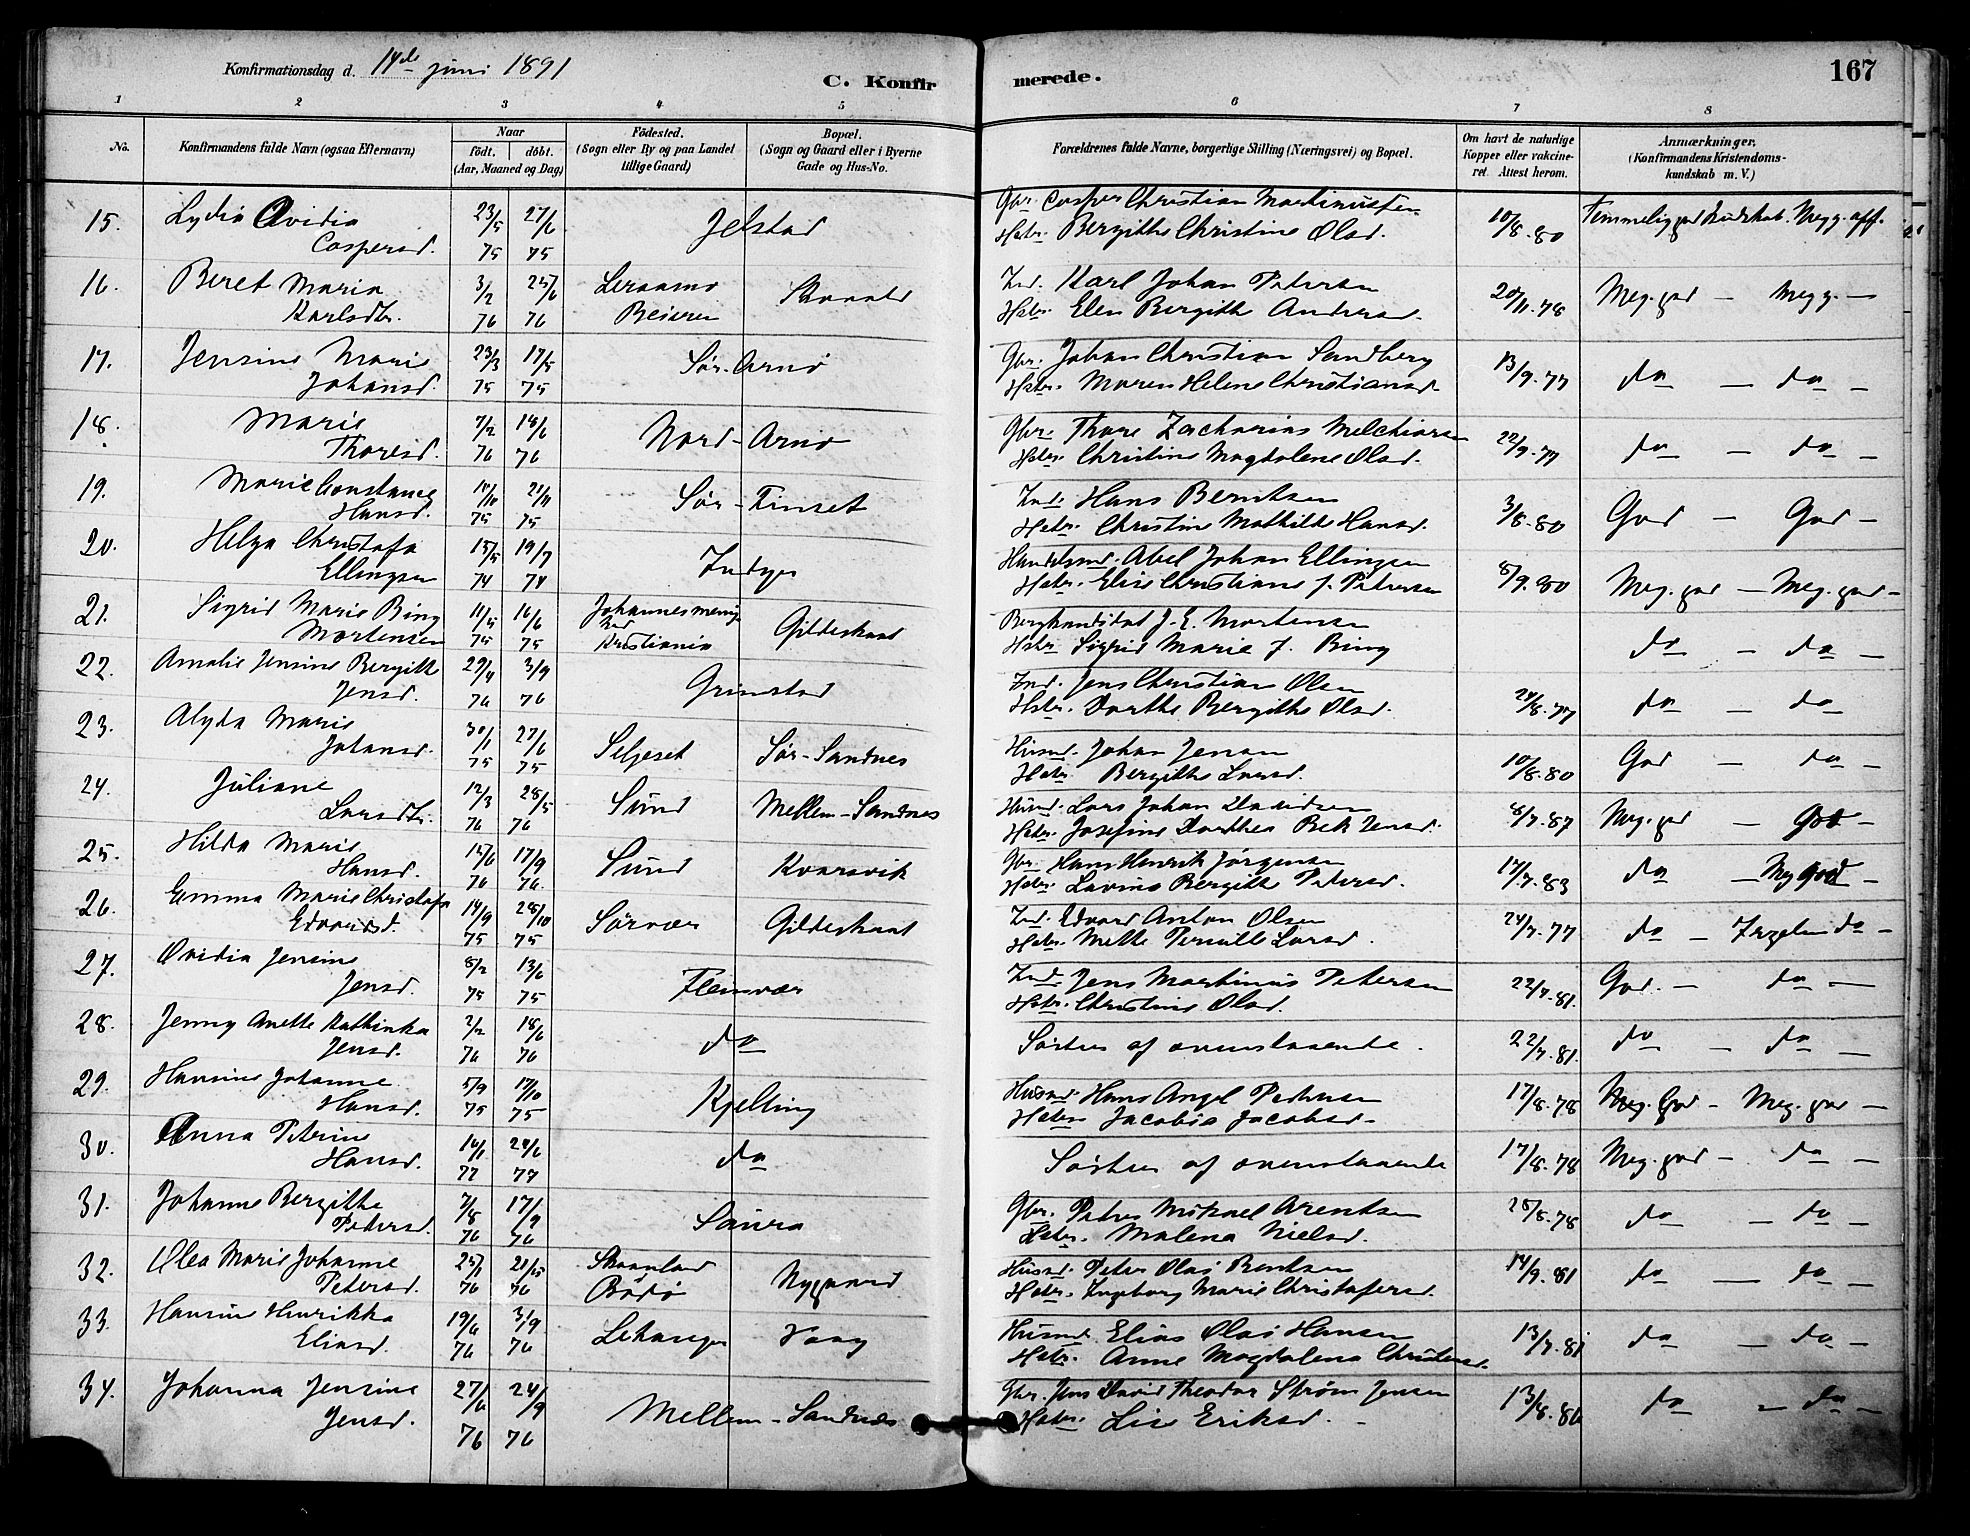 Konfirmationsdag d. 14de juni 1891
C. Konfirmerede.
167
1 2 3 4 5 6 7 8
No. Konfirmandens fulde Navn (ogsaa Efternavn) Naar født. døbt. (Aar, Maaned og Dag) Fødested. (Sogn eller By og paa Landet tillige Gaard) Bopæl. (Sogn og Gaard eller i Byerne Gade og Hus-No. Forældrenes fulde Navne, borgerlige Stilling (Næringsvei) og Bopæl. Om havt de naturlige Kopper eller vakcineret. Attest herom. Anmærkninger. (Konfirmandens Kristendomskundskab m. V.)
15. Lydia Ovidia 23/5 27/6 Jelstad Gbr. Casper Christian Martinussen 10/8.80 Temmelig god Kundskab. Meg g. opf.
Caspersd. 75 75 Hstr. Bergitte Christine Olsd.
16. Beret Maria 3/2 25/6 Leraamo Skaald Ind. Karl Johan Petersen 20/11.78 Meg. god — Meg g. —
Karlsdtr. 76 76 Beieren Hstr. Elen Bergitte Andersd.
17. Jensine Marie 23/3 17/5 Sør-Arnø Gbr. Johan Christian Sandberg 13/9.77 do — do —
Johansd. 75 75 Hstr. Maren Helene Christiansd.
18. Marie 7/2 18/6 Nord-Arnø Gbr. Thore Zacharias Melchiorsen 22/9.77 do — do —
Thoresd. 76 76 Hstr. Christine Magdalene Olsd.
19. Marie Constance 21/11 Sør-Finset Ind. Hans Berntsen 3/8.80 God — God —
Hansd. 75 75 Hstr. Christine Mathilde Hansd.
20. Helga Christofa 15/5 19/7 Indyr Handelsmd. Abel Johan Ellingsen 8/9.80 Meg. god — Meg. god —
Ellingsen 74 74 Hstr. Elise Christiane f. Petersen
21. Sigrid Marie Bing 11/5 16/6 Johannes menig Gildeskaal Bergkandidat J. E. Mortensen do — do —
Mortensen 75 75 hed Kristiania Hstr. Sigrid Marie f. Bing
22. Amalie Jensine Bergitte 29/4 3/9 Grimstad Ind. Jens Christian Olsen 24/8.77 do — do
Jensd. 76 76 Hstr. Dorthe Bergitte Olsd.
23. Alyda Marie 30/1 27/6 Seljeset Sør-Sandnes Husmd. Johan Jensen 10/8.80 God — do —
Johansd. 75 75 Hstr. Bergitte Larsd.
24. Juliane 12/3 28/5 Sund Mellem-Sandnes Husmd. Lars Johan Davidsen 8/7.87 Meg. god — God —
Larsdtr. 76 76 Hstr. Josefine Dorthea Bek Jensd.
25. Hilda Marie 15/6 17/9 Sund Kvarsvik Gbr. Hans Henrik Jørgensen 17/7.83 do — Meg God —
Hansd. 76 76 Hstr. Lavina Bergitte Petersd.
26. Emma Marie Christofa 14/9 28/10 Sørvær Gildeskaal Ind. Edvard Anton Olsen 24/7.77 do — do —
Edvardsd. 75 75 Hstr. Mette Pernille Larsd.
27. Ovidia Jensine 8/2 13/6 Fleinvær Ind. Jens Martinus Petersen 22/7.81. God. — do —
Jensd. 75 75 Hstr. Christine Olsd.
28. Jenny Anette Kathinka 2/2 18/6 do Søster af ovenstaaende. 22/7.81. do — do —
Jensd. 76 76
29. Hansine Johanne 5/9 17/10 Kjelling Husmd. Hans Angel Pedersen 17/8.78 Meg. God — Meg. god —
Hansd. 75 75 Hstr. Jacobia Jacobsd.
30. Anna Petrine 16/1 24/6 do Søster af ovenstaaende 17/8.78 Meg. god — do —
Hansd. 77 77
31. Johanne Bergitthe 7/8 17/9 Saura Gbr. Peter Mikael Arentsen 28/8.78 do — do —
Petersd. 76 76 Hstr. Malena Nielsd.
32. Olea Marie Johanne 25/1 Skaanland Nygaard Husmd. Peter Olai Bentsen 14/9.81 do — do —
Petersd. 76 76 Bodø Hstr. Ingeborg Marie Christofersd.
33. Hansine Henrikka 19/6 3/9 Lekanger Vaag Husmd. Elias Olai Hansen 13/7.81 do — do —
Eliasd. 76 76 Hstr. Anne Magdalena Christensd.
34. Johanna Jensine 27/6 24/9 Mellem-Sandnes Gbr. Jens David Theodor Strøm Jensen 13/8.86 do — do —
Jensd. 76 76 Hstr. Lise Eriksd. —